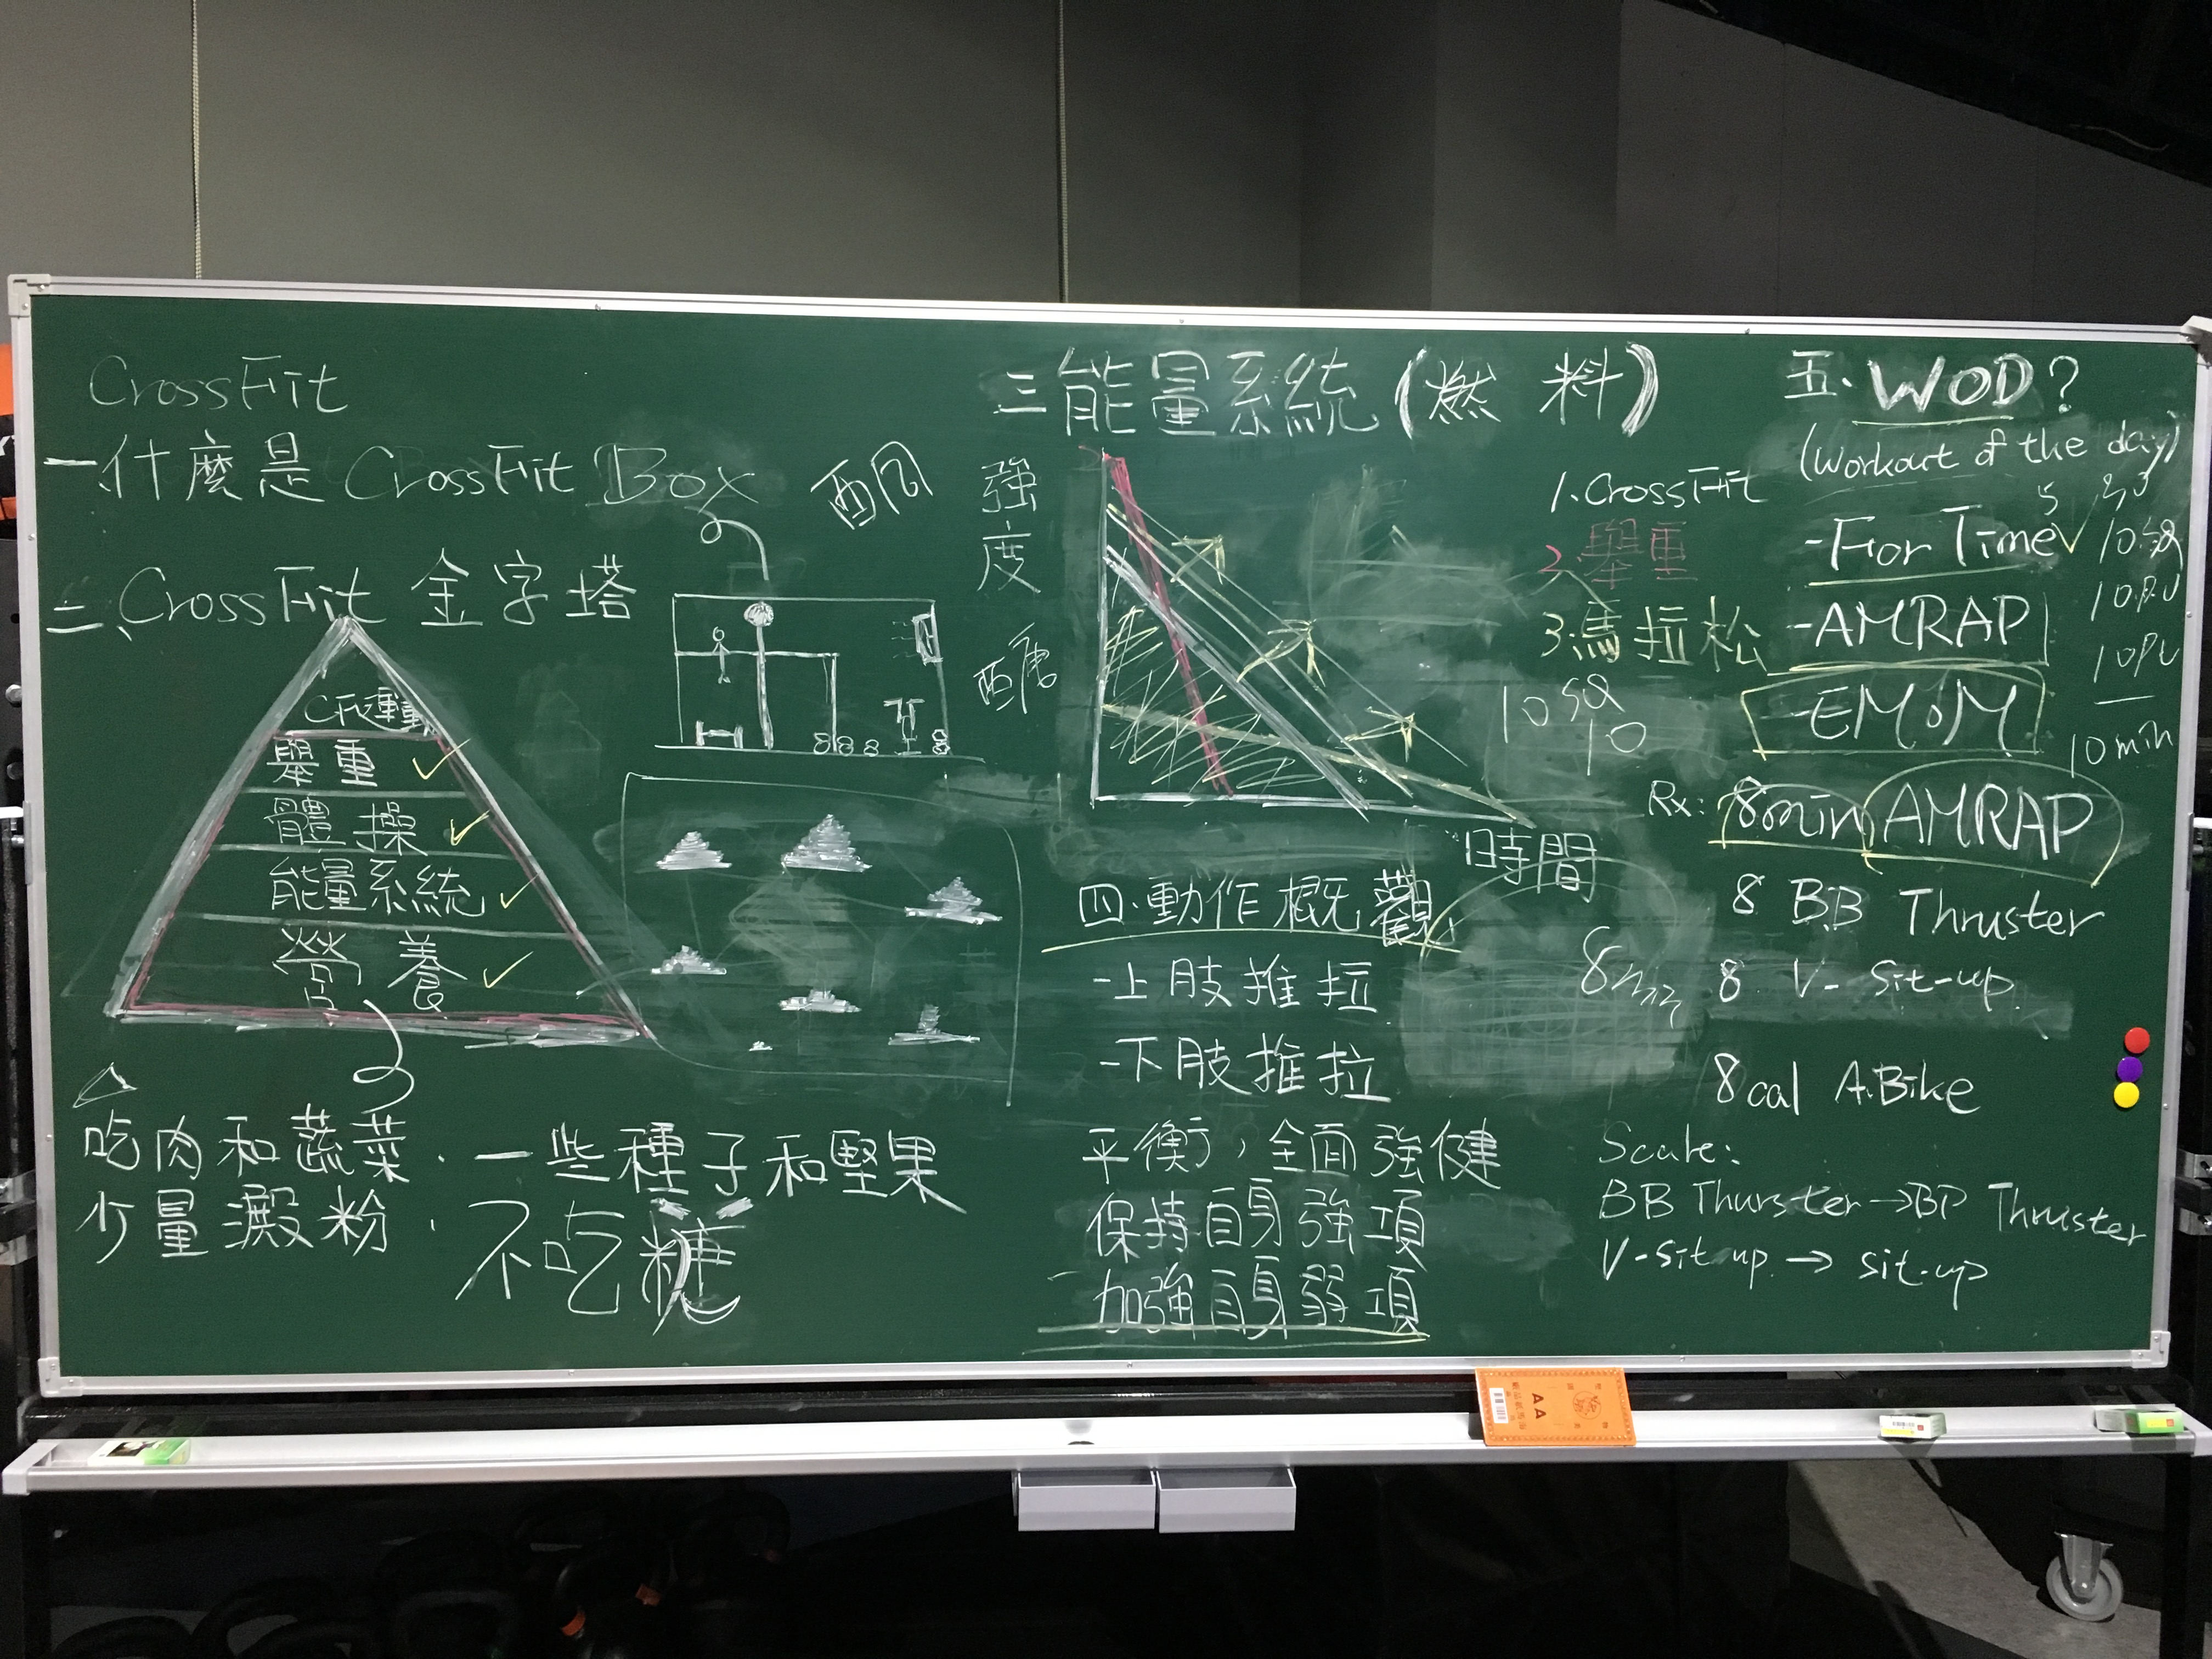 CrossFit
一.什麼是 CrossFit Box
二.CrossFit 金字塔
CF運動
舉重
體操
能量系統
營養
吃肉和蔬菜．一些種子和堅果
少量澱粉．不吃糖
三能量系統(燃料)
強度
時間
1.CrossFit
2.舉重
3.馬拉松
10 SQ
10
四.動作概觀
-上肢推拉
-下肢推拉
平衡，全面強健
保持自身強項
加強自身弱項
五.WOD?
(Workout of the day)
-For Time
-AMRAP
-EMOM
10 PU
10 min
Rx: 8min AMRAP
8 BB Thruster
8 V-sit-up
8cal A.Bike
8min
Scale:
BB Thurster→BP Thruster
V-sit-up → sit-up
AA